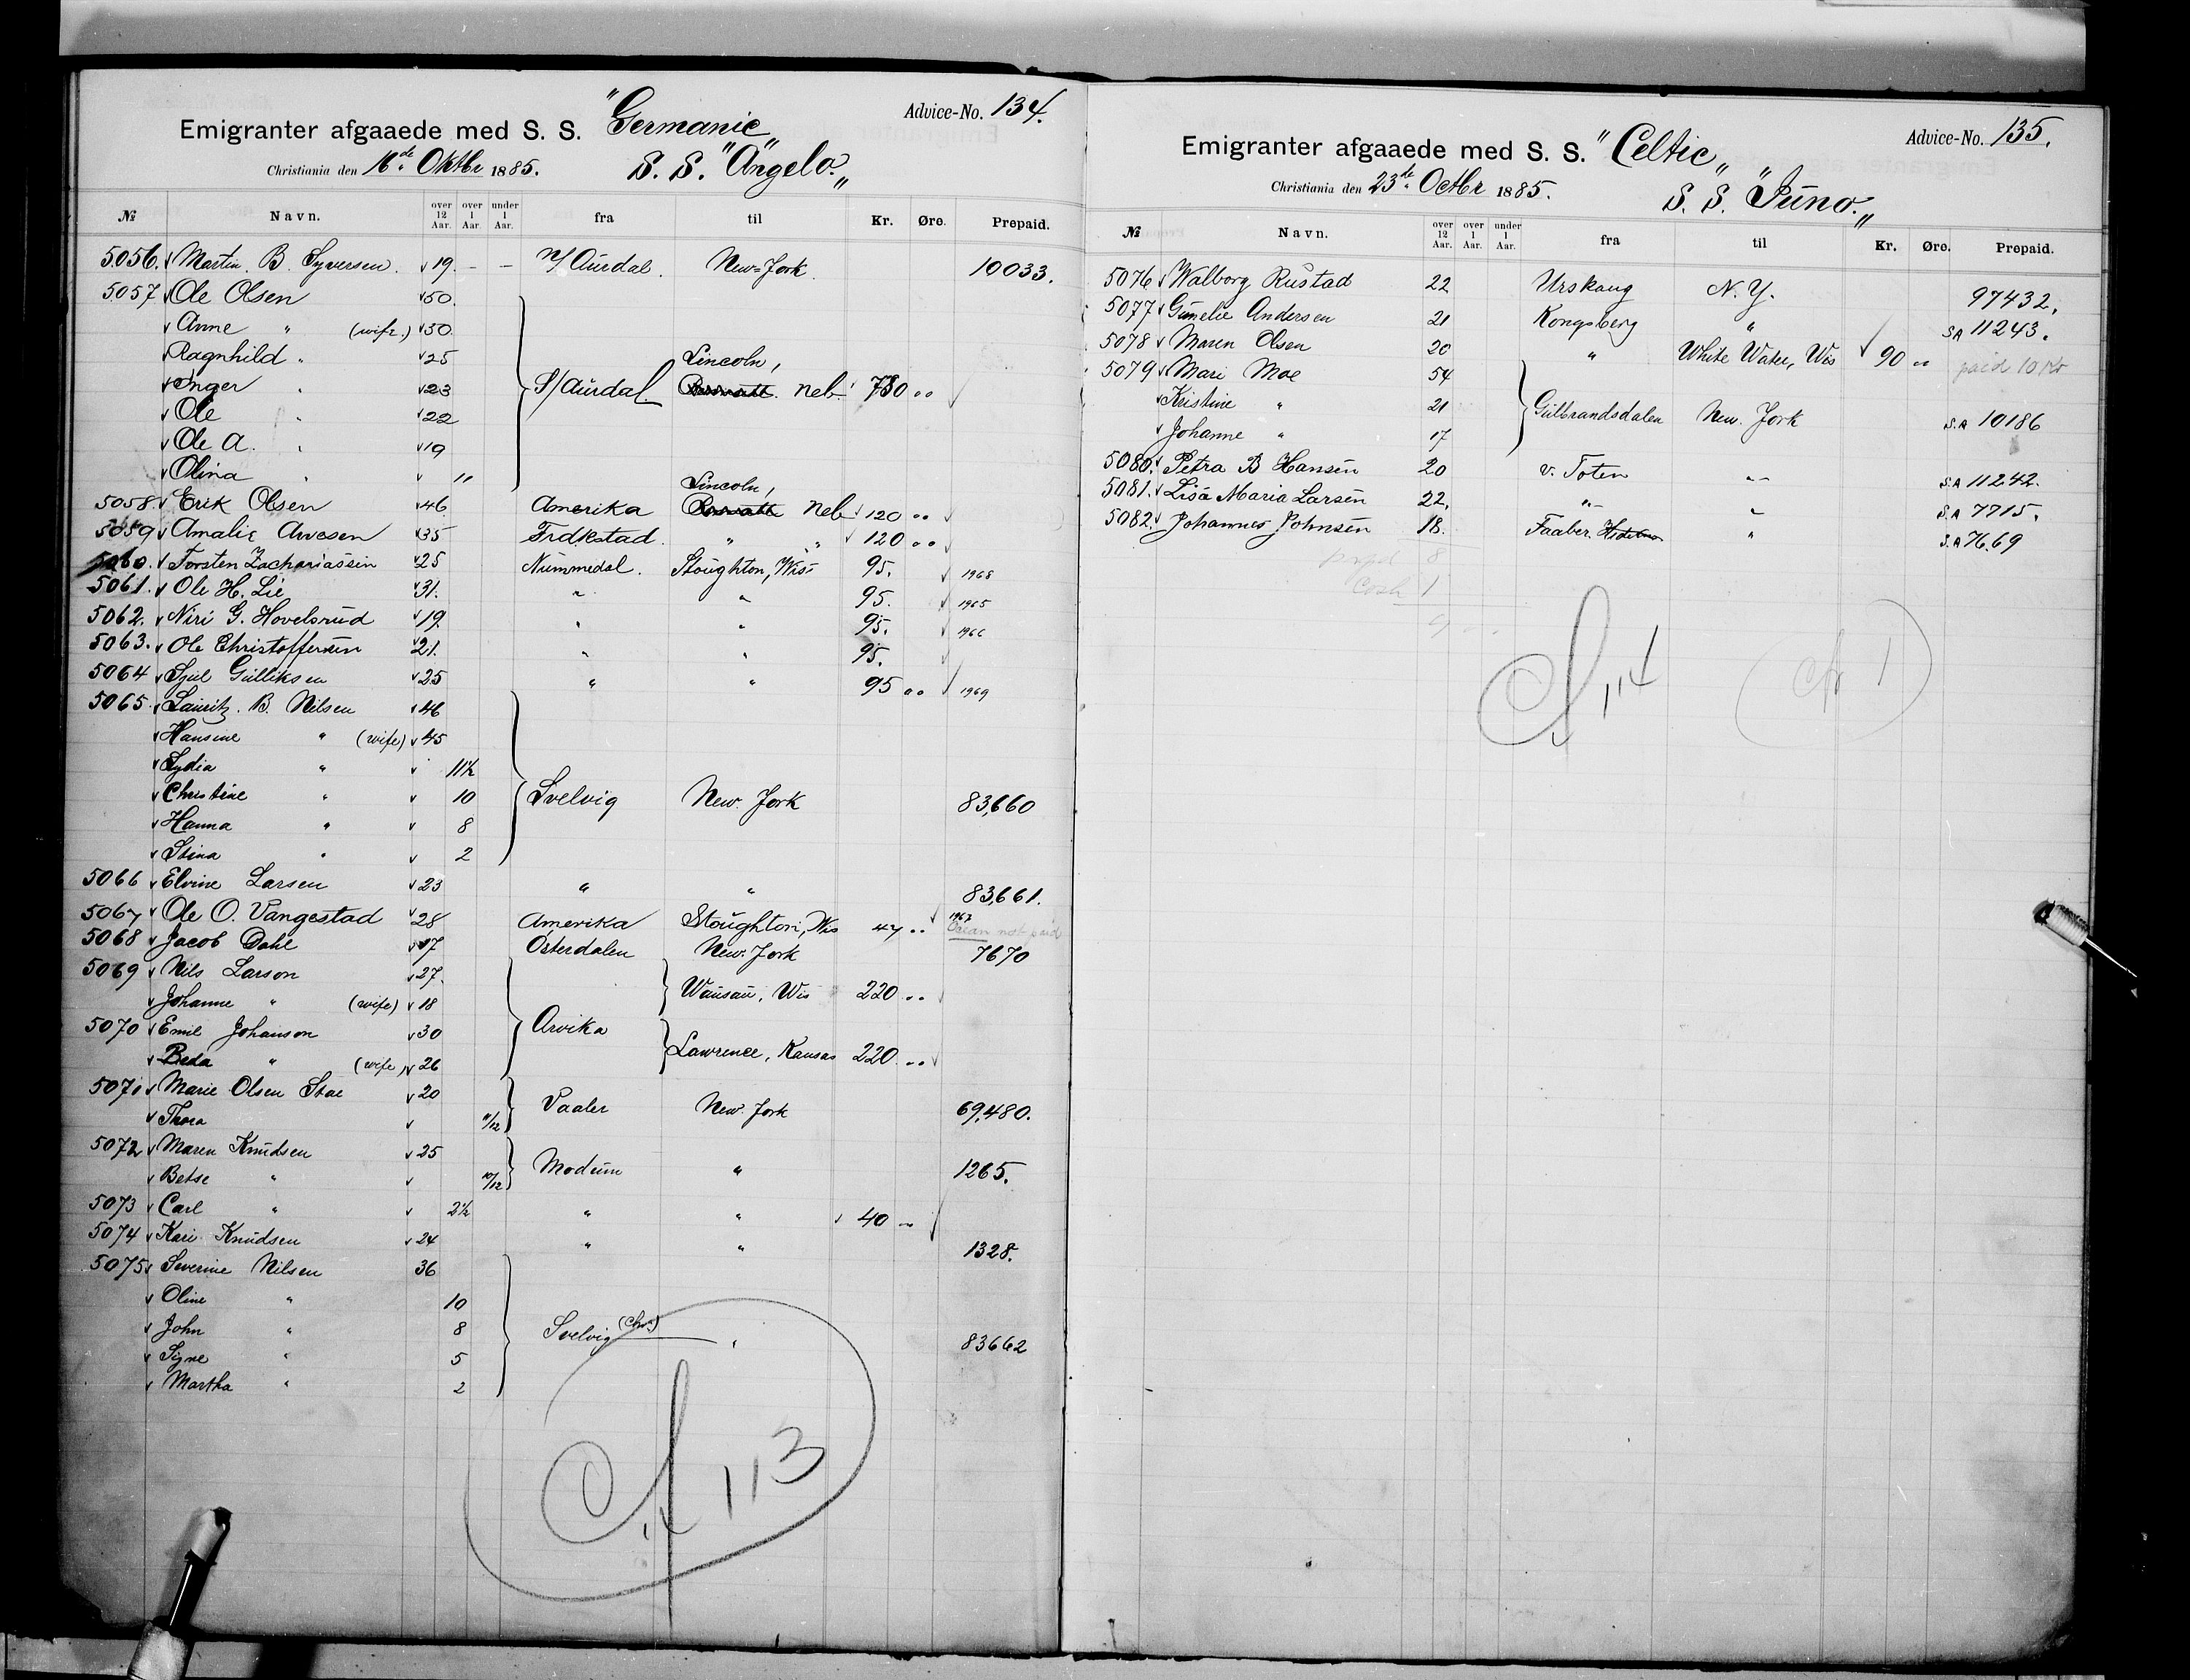 Advice-No. 134.
Emigranter afgaaede med S. S. "Germanic„
Christiania den 16de Oktbr 1885. S. S. "Angelo.„
№ Navn. over 12 Aar. over 1 Aar. under 1 Aar. fra til Kr. Øre. Prepaid.
5056. Martin. B. Syversen. 19. – – N/Aurdal. New-York. 10033.
5057 Ole Olsen 50.
Anne " (wife.) 50.
Ragnhild " 25 Lincoln,
Inger " 23 S/Aurdal. Neb. 780 "
Ole " 22
Ole A. " 19
Olina " 11 Lincoln,
5058. Erik Olsen 46. Amerika Neb 120 "
5059 Amalie Arvesen 35 Frdkstad. " " 120 "
5060. Torsten Zachariassin 25 Nummedal. Stoughton, Wis 95. 1968
5061. Ole H. Lie 31. " " 95. 1965
5062. Niri G. Hovelsrud 19. " " 95. 1966
5063. Ole Christoffersen 21. " " 95.
5064 Sjul Gulliksen 25 " " 95 " 1969
5065. Lauritz. B. Nilsen 46
Hansine " (wife) 45
Lydia " 11½
Christine " 10 Svelvig New York 83,660
Hanna " 8
Stina " 2
5066 Elvine Larsen 23 " " 83,661.
5067 Ole O. Vangestad 28 Amerika Stoughton, Wis 47 " 1967 Ocean not paid
5068 Jacob Dahl 17 Österdalen New York 7670
5069 Nils Larson 27.
Johanne " (wife) 18 Wausau, Wis 220 "
5070 Emil Johanson 30 Arvika
Beda " (wife) 26 Lawrence, Kansas 220 "
5071 Marie Olsen Stae 20
Thora 11/12 Vaaler New York 69,480.
5072 Maren Knudsen 25
Betse " 10/12 Modum " 1265.
5073 Carl " 2½ " " 40 "
5074 Kari Knudsen 24 " " 1328.
5075 Severine Nilsen 36
Oline " 10
John " 8 Svelvig (Chra) " 83662
Signe " 5
Martha " 2
113
Advice-No. 135.
Emigranter afgaaede med S. S. "Celtic„
Christiania den 23de Octbr 1885. S. S. "Juno.„
№ Navn. over 12 Aar. over 1 Aar. under 1 Aar. fra til Kr. Øre. Prepaid.
5076 Walborg Rustad 22 Urskaug N. Y. 97432.
5077 Gunelie Andersen 21 Kongsberg " SA 11243.
5078 Maren Olsen 20 " White Water, Wis 90 " paid 10 Kr
5079 Mari Moe 54
Kristine " 21 Gulbrandsdalen New York S.A 10186
Johanne " 17
5080. Petra B Hansen 20 v. Toten " S.A 11242.
5081. Lisa Maria Larsen 22. " " S.A 7715.
5082. Johannes Johnsen 18. Faaber. " S.A 7669
prepd 8
Cash 1
9
114
1